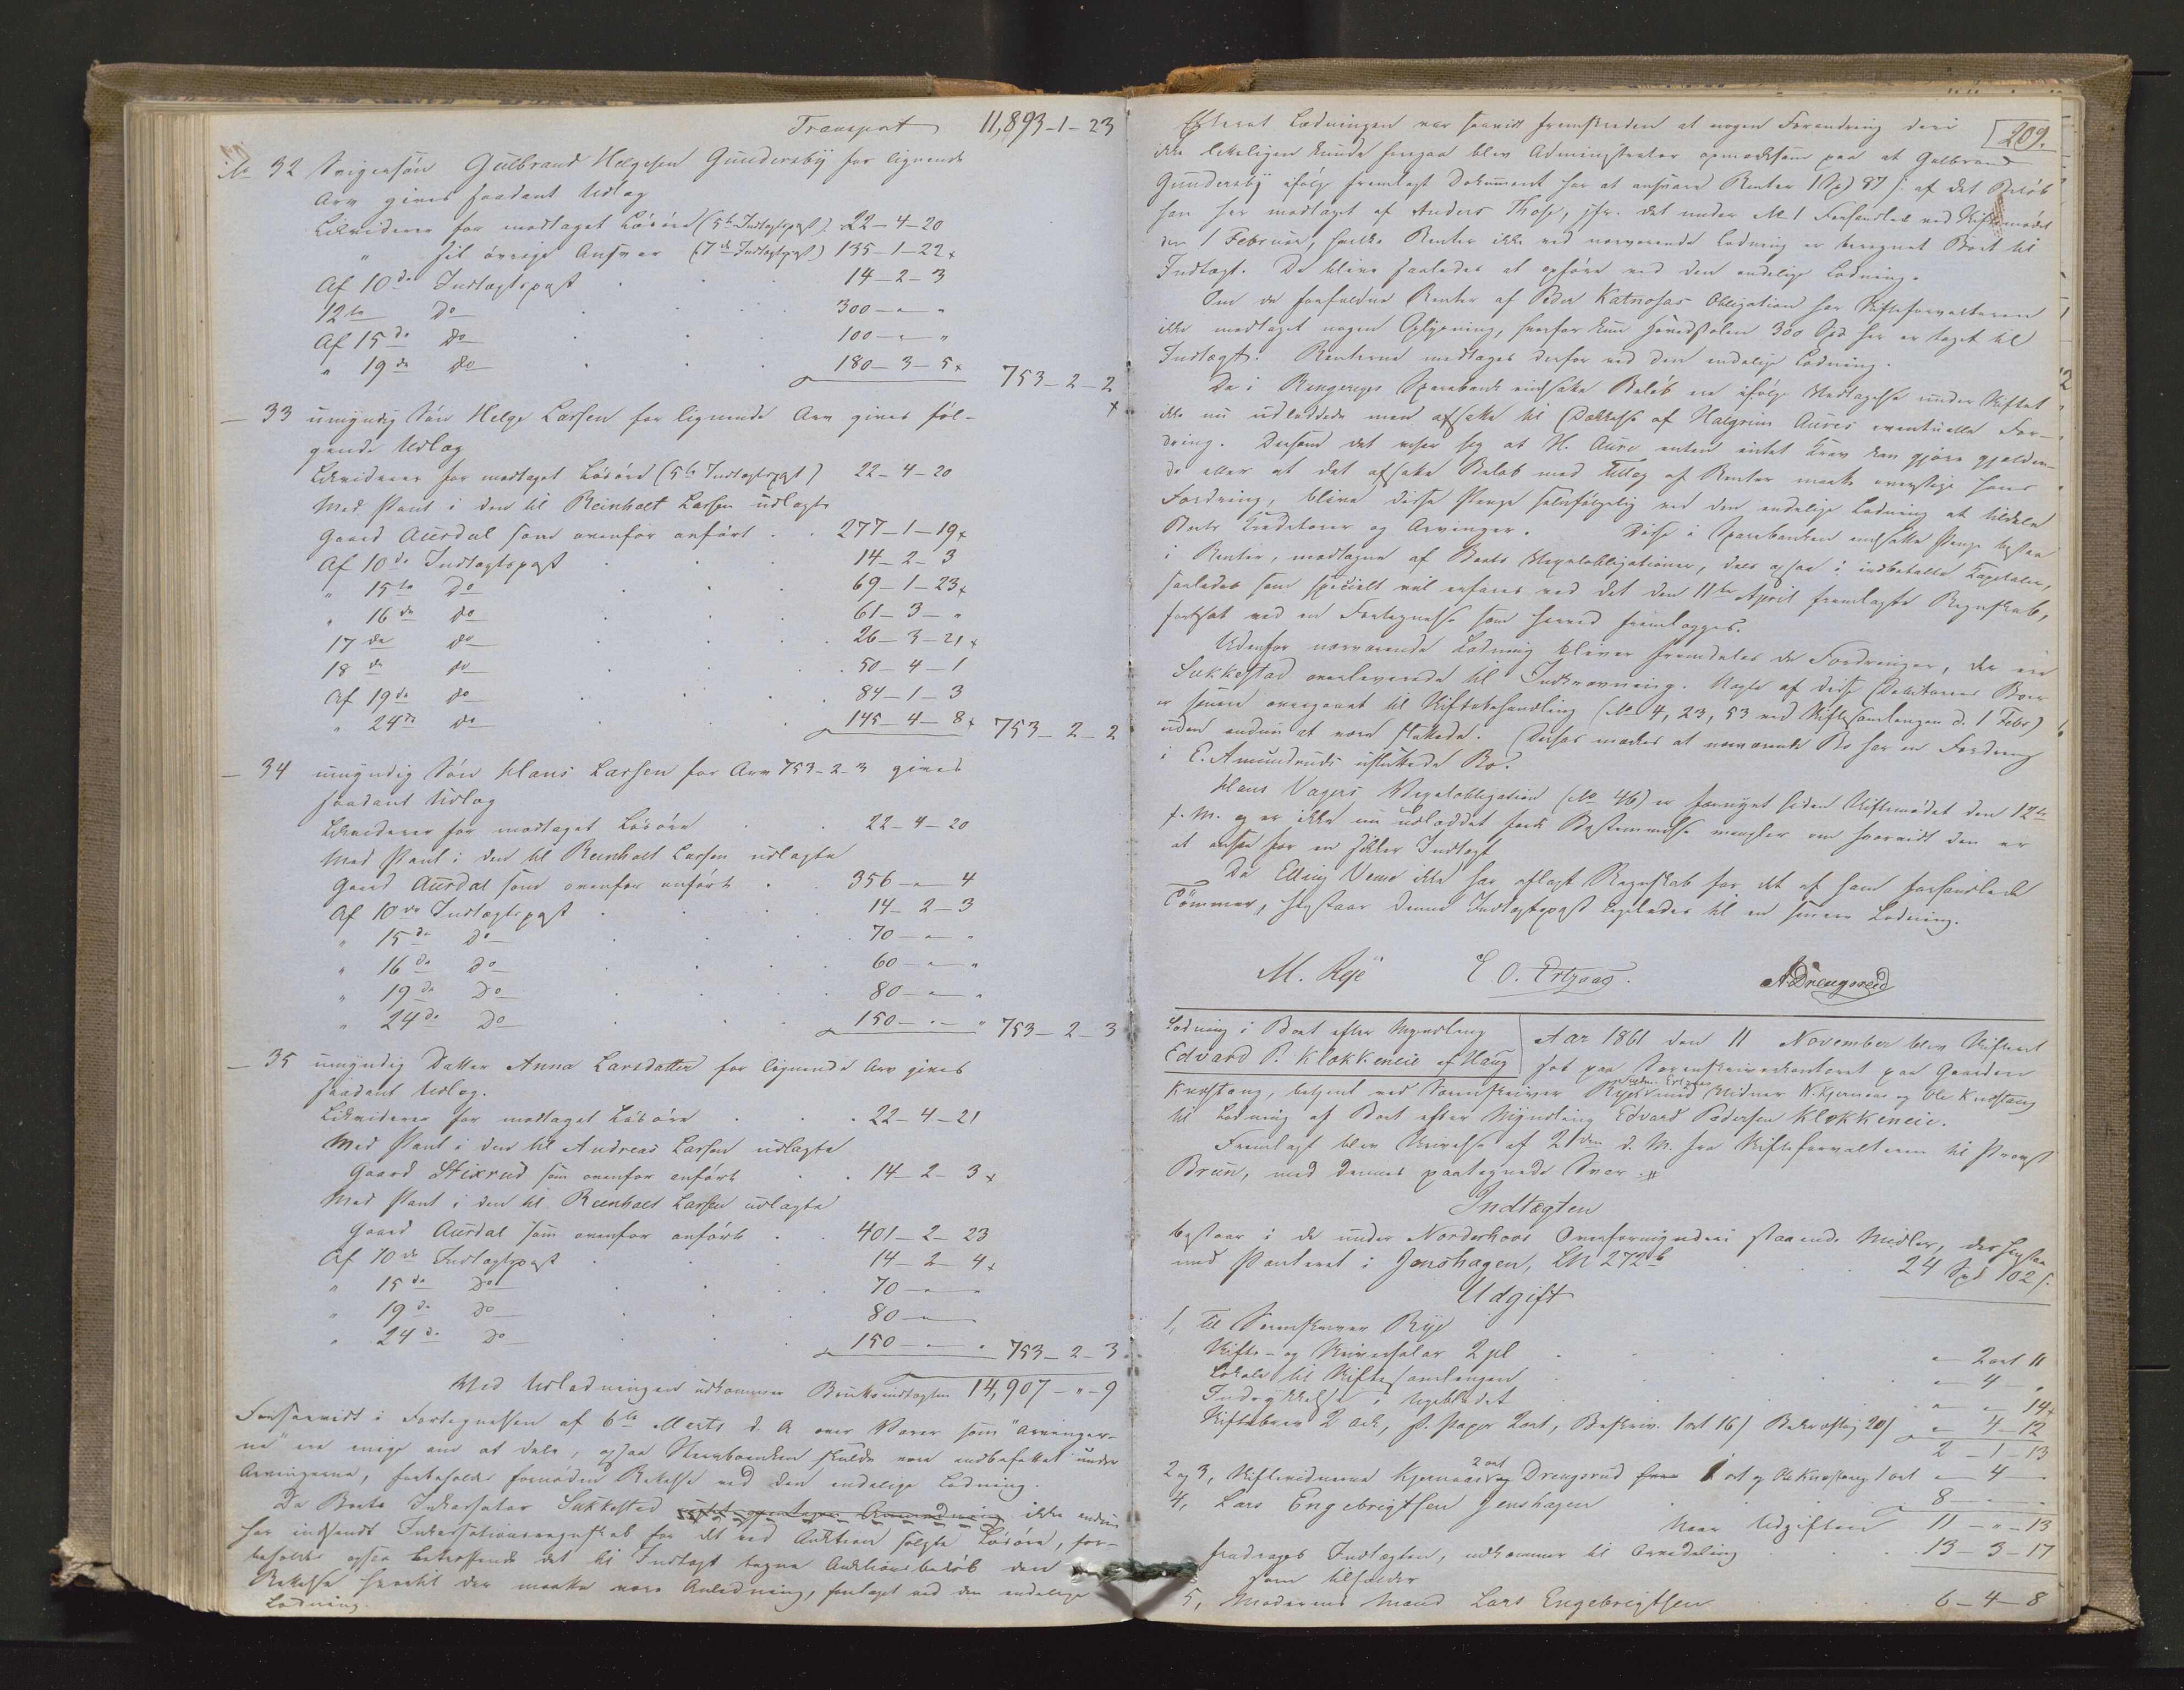 Transport 11,893-1-23
No 32 Svigersøn Gulbrand Helgesen Gundersby for lignende
Arv gives saadant Udlæg
Likviderer for modtaget Løsøre (5te Indtægtspost) 22-4-20
" sit øvrige Ansvar (7de Indtægtspost) 135-1-22x
Af 10de Indtægtspost 14-2-3
12te Do 300-"-"
Af 15de Do 100-"-"
" 19de Do 180-3-5x 753-2-2
- 33 umyndig Søn Helge Larsen for lignende Arv gives føl-
gende Udlæg
Likviderer for modtaget Løsøre (5te Indtægtspost) 22-4-20
Med Pant i den til Reinholt Larsen udlagte
Gaard Aursdal som ovenfor anført 277-1-19x
Af 10de Indtægtspost 14-2-3
" 15te Do 69-1-23x
" 16de Do 61-3-"
17de Do 26-3-21x
18de Do 50-4-1
Af 19de Do 84-1-3
" 24de Do 145-4-8x 753-2-2
- 34 umyndig Søn Hans Larsen for Arv 753-2-3 gives
saadant Udlæg
Likviderer for modtaget Løsøre 22-4-20
Med Pant i den til Reinholt Larsen udlagte
Gaard Aursdal som ovenfor anført 356-"-4
Af 10de Indtægtspost 14-2-3
" 15de Do 70-"-"
" 16de Do 60-"-"
" 19de Do 80-"-"
" 24de Do 150-"-" 753-2-3
- 35 umyndig Datter Anna Larsdatter for lignende Arv gives
saadant Udlæg.
Likviderer for modtaget Løsøre 22-4-21
Med Pant i den til Andreas Larsen udlagte
Gaard Stixrud som ovenfor anført 14-2-3x
Med Pant i den til Reinholt Larsen udlagte
Gaard Aursdal som ovenfor anført 401-2-23
Af 10de Indtægtspost 14-2-4x
" 15de Do 70-"-"
" 19de Do 80-"-"
" 24de Do 150-"-" 753-2-3
Ved Udlodningen udkommer Bruttoindtægten 14,907-"-9
Forsaavidt i Fortegnelsen af 6te Marts d. A over Varer som "Arvinger-
ne" ere enige om at dele, ogsaa Sterboenken skulde være indbefattet under
Arvingerne, forbeholdes fornøden Rettelse ved den endelige Lodning.
Da Boets Inkassator Sukkestad ikke endnu
har indsendt Inkassationsregnskab for det ved Auktion solgte Løsøre, for-
beholdes ogsaa betræffende det til Indtægt tagne Auktionsbeløb den
Rettelse hvortil der maatte være Anledning, foretaget ved den endelige
Lodning.
209.
Efterat Lodningen var saavidt fremskreden at nogen Forandring deri
ikke lettelig kunde foregaa blev Administrator opmærksom paa at Gulbrand
Gundersby ifølge fremlagt Dokument har at ansvare Renter 1 Spd 97 s: af det Beløb
han har modtaget af Anders Those, jfr. det under No 1 Forhandlet ved Skiftemødet
den 1 Februar, hvilke Renter ikke ved nærværende Lodning er beregnet Boet til
Indtægt. De blive saaledes at opføre ved den endelige Lodning.
Om de forfaldne Renter af Peder Katnosas Obligation har Skifteforvalteren
ikke modtaget nogen Oplysning, hvorfor kun Hovedstolen 300 Spd her er taget til
Indtægt. Renterne medtages derfor ved den endelige Lodning.
De i Ringeriges Sparebank indsatte Beløb ere ifølge Vedtagelse under Skiftet
ikke nu udloddede men afsatte til Dækkelse af Halgrim Aures eventuelle For-
dring. Dersom det viser sig at H. Aure enten intet Krav kan gjøre gjælden-
de eller at det afsatte Beløb med Tillæg af Renter maatte overstige hans
Fordring, blive disse Penge selvfølgelig ved den endelige Lodning at tildele
Boets Kreditorer og Arvinger. Disse i Sparebanken indsatte Penge bestaa
i Renter, modtagne af Boets Vexelobligationer, dels ogsaa i indbetalte Kapitaler,
saaledes som specielt vil erfares ved det den 11te April fremlagte Regnskab,
fortsat ved en Fortegnelse som herved fremlægges.
Udenfor nærværende Lodning bliver fremdeles de Fordringer, der ere
Sukkestad overleverede til Indkrævning. Nogle af disse Debitorers Boer
er senere overgaaet til Skiftebehandling (No 4, 23, 53 ved Skiftesamlingen d. 1 Febr)
uden endnu at være sluttede. Derhos mærkes at nærværende Bo har en Fordring
i E. Amundruds usluttede Bo.
Hans Vagers Vexelobligation (No 46) er fornyet siden Skiftemødet den 12te
f. M. og er ikke nu udloddet fordi Bestemmelse mangler om hvorvidt den er
at ansee for en sikker Indtægt
Da Elling Veme ikke har aflagt Regnskab for det af ham forhandlede
Tømmer, henstaar denne Indtægtspost ligeledes til en senere Lodning.
M. Rye E O. Ertzaas. A Drengsrud
Lodning i Boet efter Myndling
Edvard P. Klokkeneie af Haug
Aar 1861 den 11 November blev Skifteret
sat paa Sorenskriverkontoret paa Gaarden
Knestang, betjent ved Sorenskriver Rye med Vidner K. Kjernaas og Ole Knestang
til Lodning af Boet efter Myndling Edvard Pedersen Klokkeneie.
Fremlagt blev Skrivelse af 21den d. M. fra Skifteforvalteren til Provst
Brun, med dennes paategnede Svar.
Indtægten
bestaar i de under Norderhovs Overformynderi staaende Midler, der henstaa
med Panteret i Jonshagen, LN 272b 24 Spd 102 s.
Udgift
1, Til Sorenskriver Rye
Skifte- og Skriversalær 2 pl " 2 ort 11
Lokale til Skiftesamlingen " 4 "
Indrykkelse i Ugebladet " " 14x
Skiftebrev 2 Ark, st. Papir 2 ort, Beskriv. 1 ort 16/ Bekræftig 20/ " 4-12
2-1-13
2 og 3, Skiftevidnerne Kjernaas 2 ort og Drengsrud 1 ort og Ole Knestang 1 ort " 4 "
4, Lars Engebrigtsen Jenshagen 8-"-"
Naar Udgiften 11-"-13
fradrages Indtægten, udkommer til Arvedeling 13-3-17
som tilfalder
5, Moderens Mand Lars Engebrigtsen 6-4-8